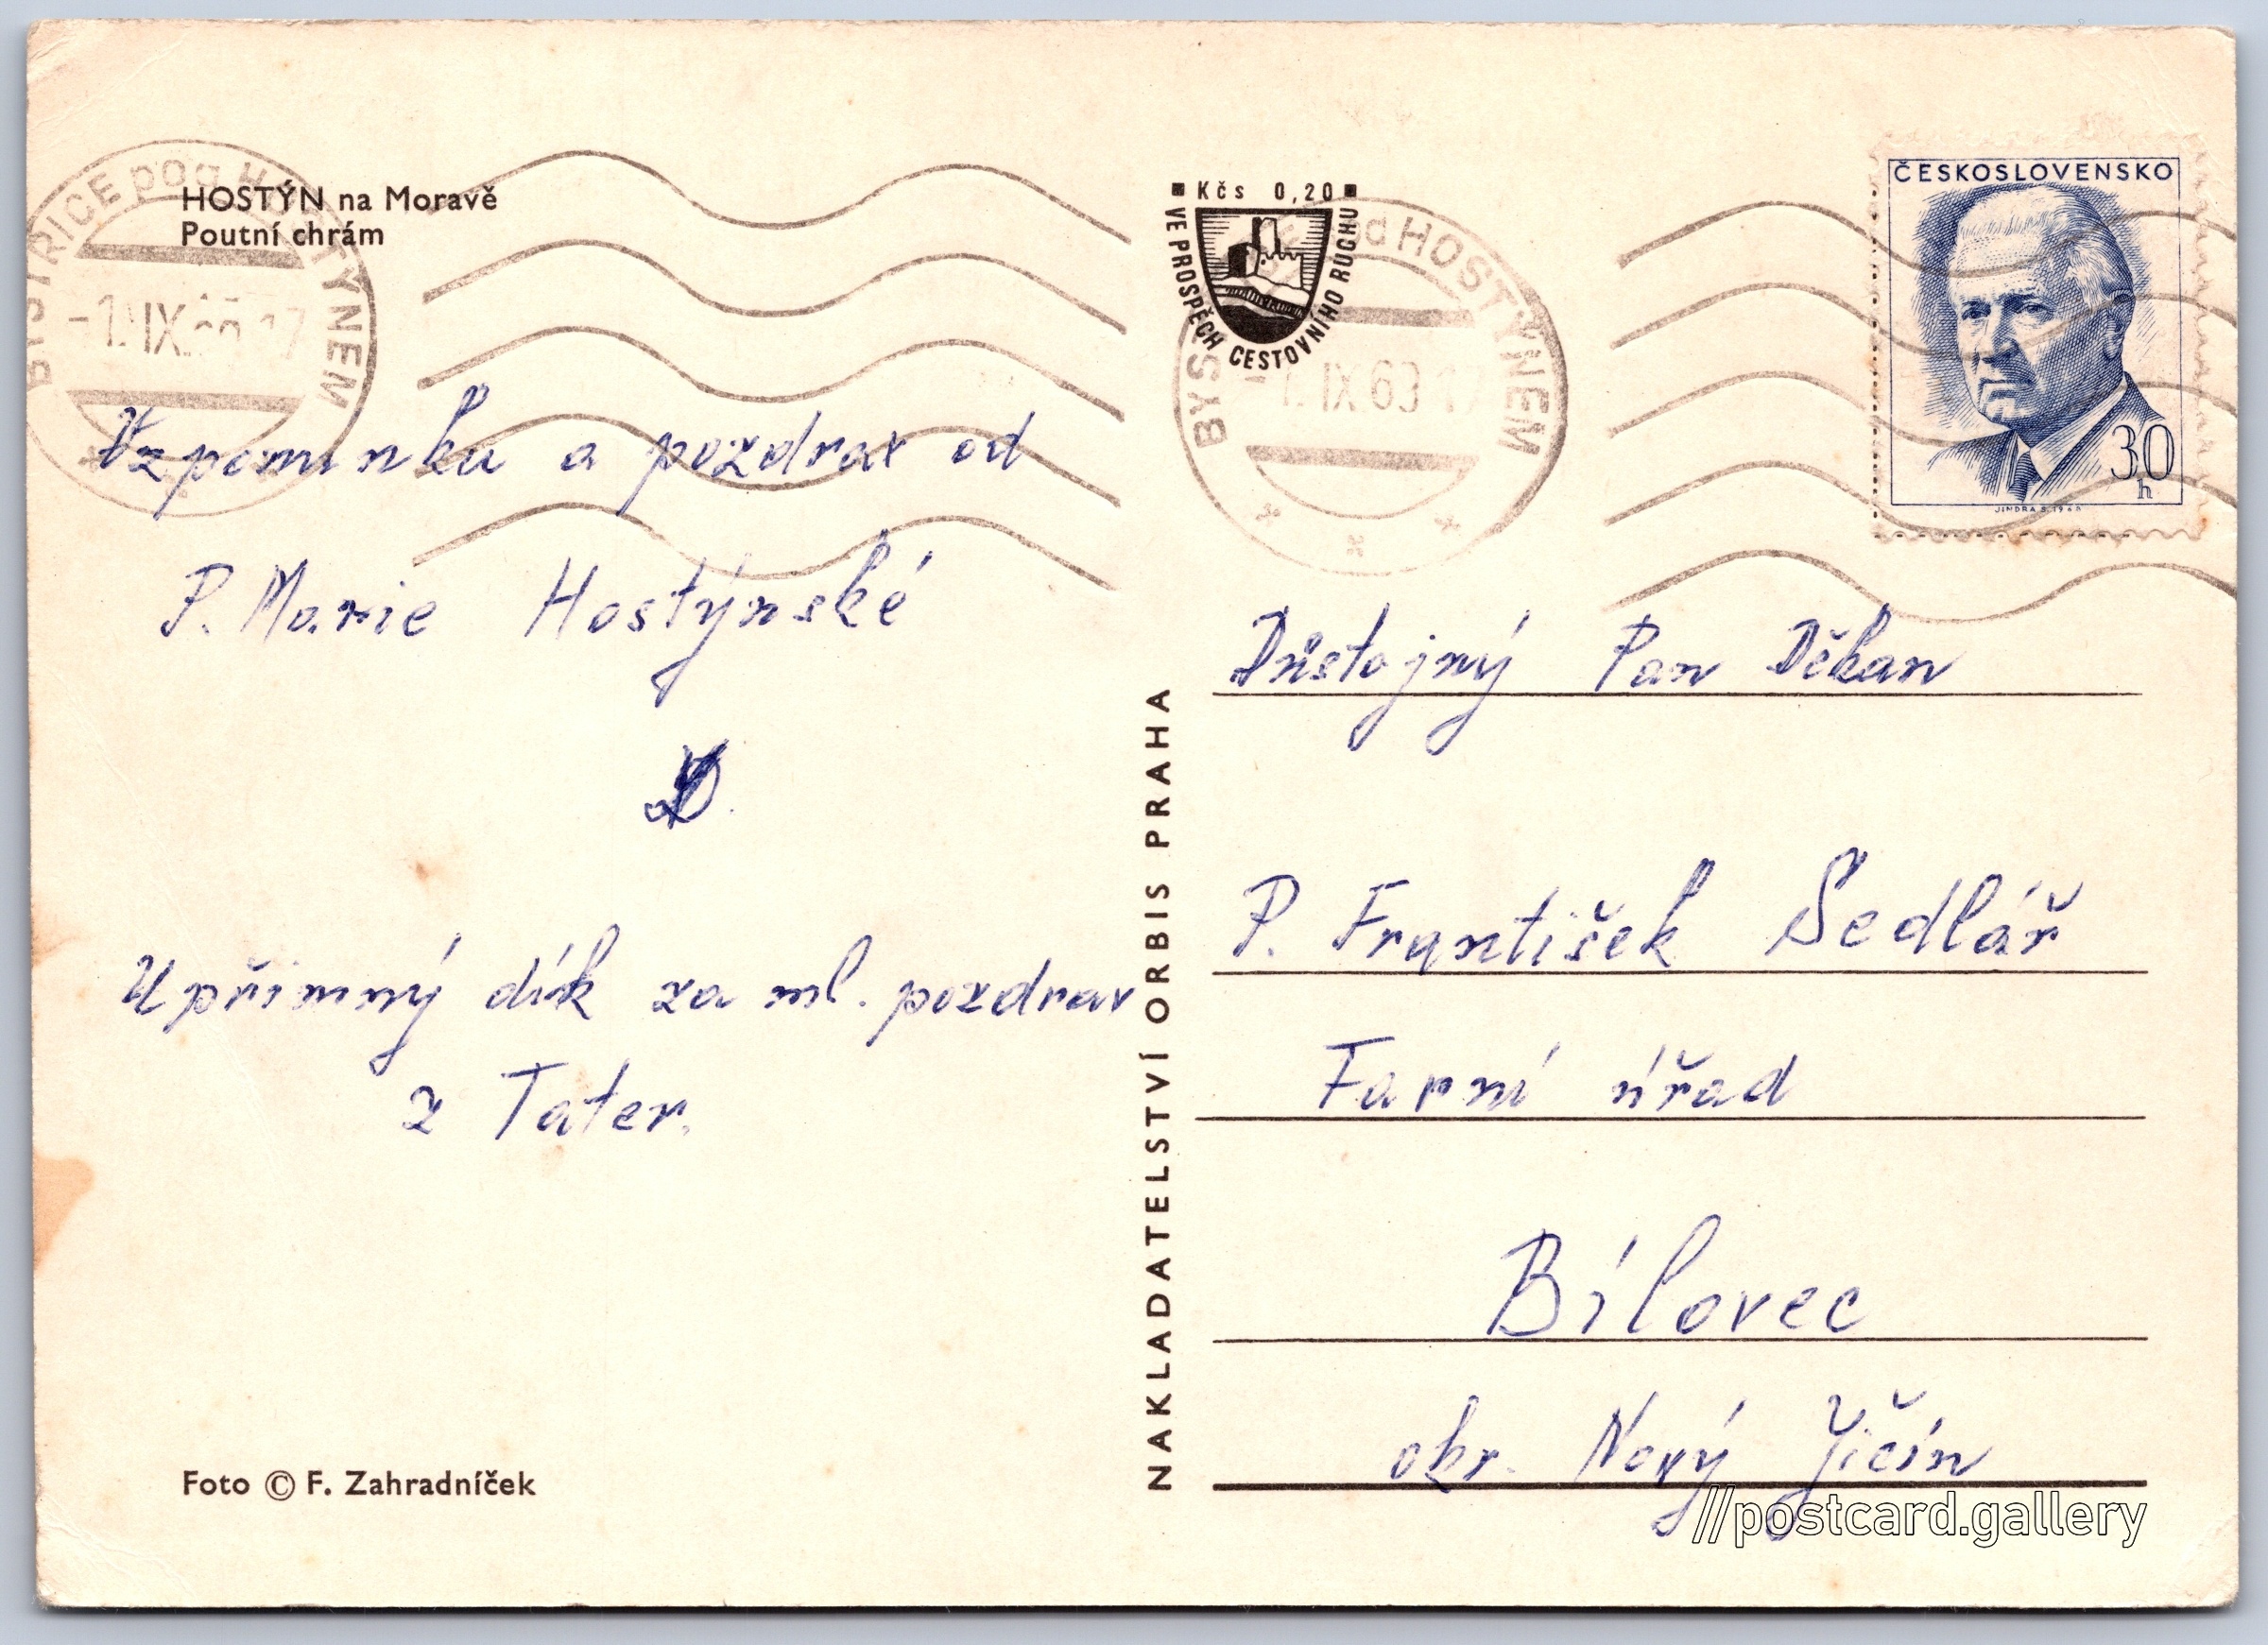 HOSTÝN na Moravě
Poutní chrám
BYSTŘICE pod HOSTÝNEM
-1.IX
Vzpomínku a pozdrav od
P. Marie Hostýnské
Upřímný dík za ml. pozdrav
z Tater.
Foto © F. Zahradníček
NAKLADATELSTVÍ ORBIS PRAHA
Kčs 0,20
VE PROSPĚCH CESTOVNÍHO RUCHU
HOSTÝNEM
-1.IX 69
ČESKOSLOVENSKO
30
h
JINDRA S. 1968
Důstojný Pan Děkan
P. František Sedlář
Farní úřad
Bílovec
okr. Nový Jičín
//postcard.gallery